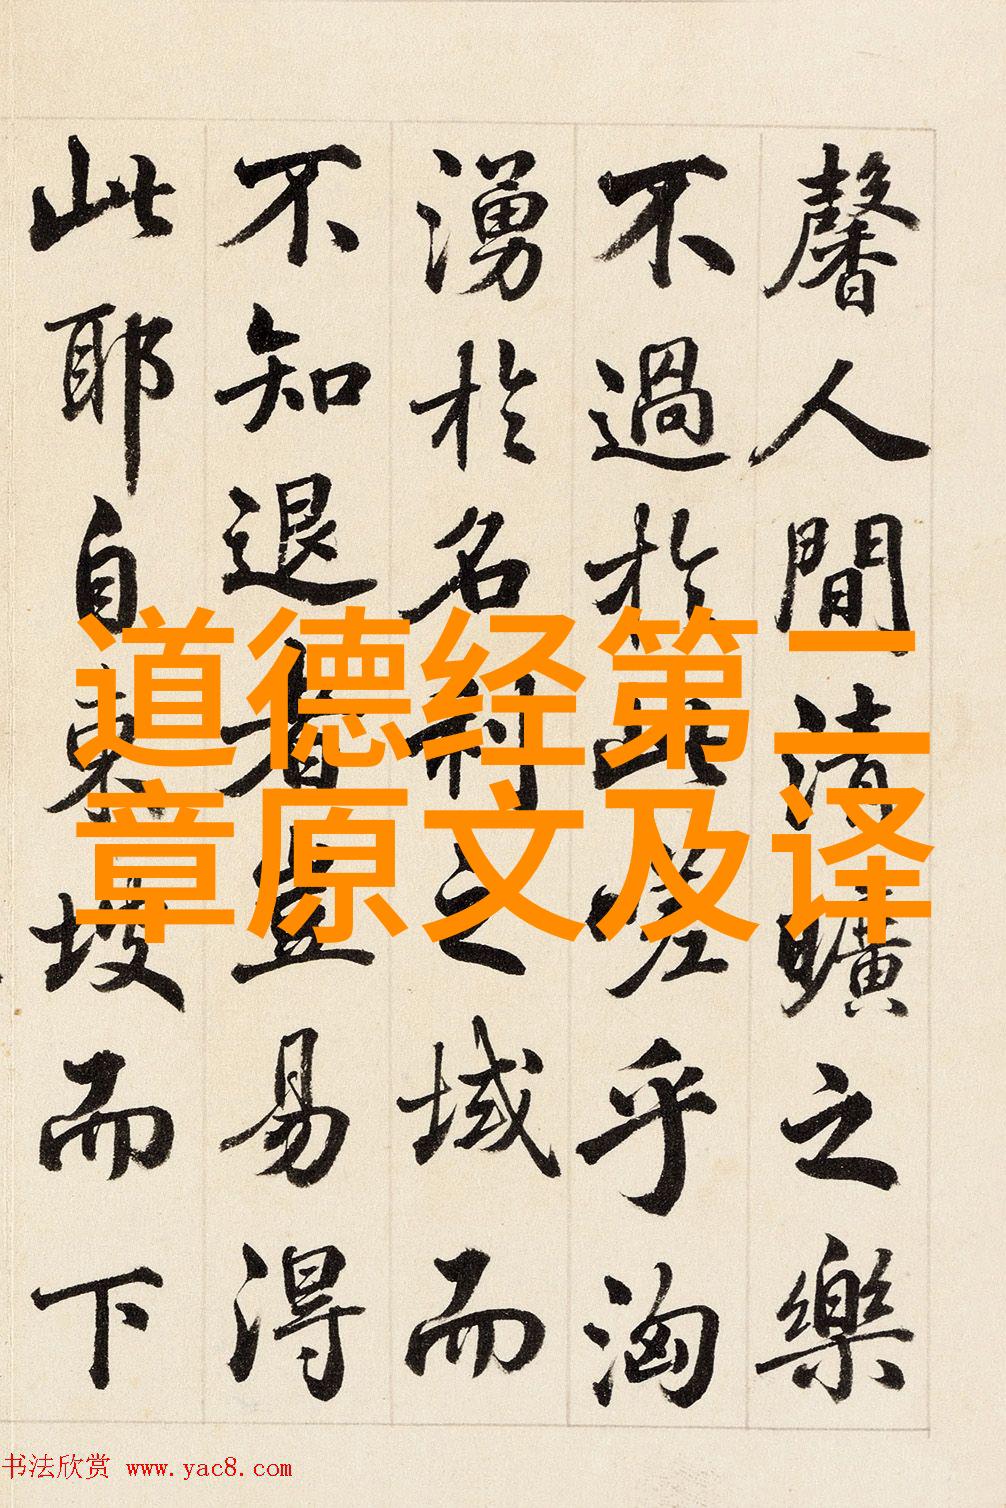 馨人間清曠之樂
不過於此嗟乎洶
湧於名利之域而
不知退者豈易得
此耶自東坡而下
道德经第二
章原文及译
书法欣赏 www.yac8.com